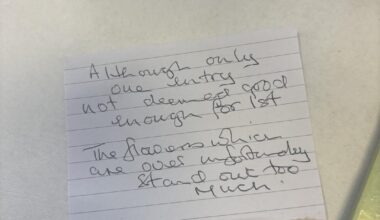 Although only
one entry
not deemed good
enough for 1st
The flowers which
are over unfortunatley
stand out too
much!